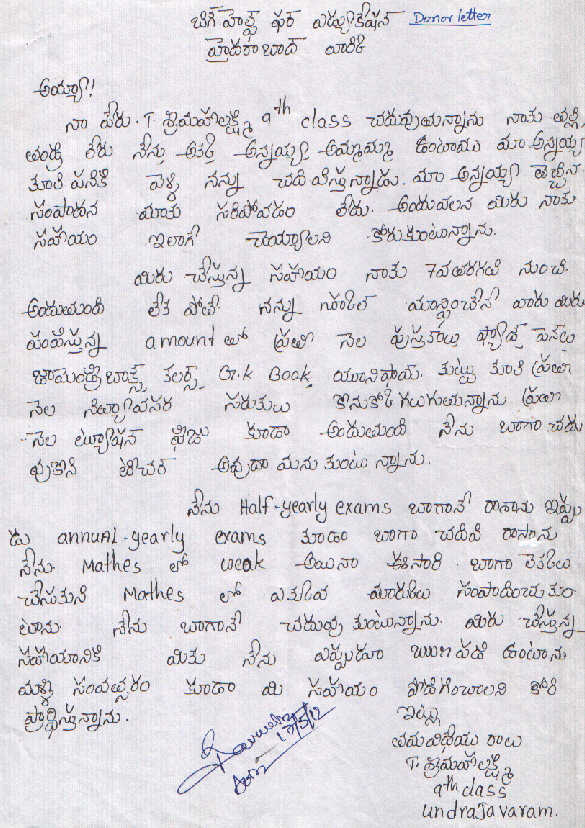 బిగ్ హెల్ప్ ఫర్ ఎడ్యుకేషన్ Donor letter
హైదరాబాద్ వారికి
అయ్యా!
నా పేరు. T. శ్రీమహాలక్ష్మి 9th class చదువుతున్నాను నాకు తల్లి
తండ్రి లేరు నేను అక్క అన్నయ్య అమ్మమ్మ ఉంటాము మా అన్నయ్య
కూలి పనికి వెళ్ళి నన్ను చదివిస్తున్నాడు. మా అన్నయ్య తెచ్చిన
సంపాదన మాకు సరిపోవడం లేదు. అందువలన మీరు నాకు
సహాయం ఇలాగే చెయ్యాలని కోరుకుంటున్నాను.
మీరు చేస్తున్న సహాయం నాకు 7వతరగతి నుంచి.
అందుతుంది లేక పోతే నన్ను స్కూల్ మాన్పించేసే వారు మీరు
పంపిస్తున్న amount లో ప్రతి నెల పుస్తకాలు ప్యాడ్ పెన్లు
జామెంట్రీబాక్స్ కలర్స్ G.k Book, యూనిఫామ్. కుట్టు కూలి ప్రతి
నెల నిత్యావసర సరుకులు కొనుకోగలుగుతున్నాను ప్రతి
నెల ట్యూషన్ ఫీజు కూడా అందుతుంది నేను బాగా చదు
వుకొని టీచర్ అవుదామనుకుంటున్నాను.
నేను Half-yearly exams బాగానే రాసాను ఇప్పు
డు annual-yearly exams కూడా బాగా చదివి రాసాను
నేను Mathes లో weak అయినా ఈసారి బాగా లెక్కలు
చేసుకుని Mathes లో ఎక్కువ మార్కులు సంపాదించుకుం
టాను నేను బాగానే చదువు కుంటున్నాను. మీరు చేస్తున్న
సహాయానికి మీకు నేను ఎప్పుడూ ఋణపడి ఉంటాను
మళ్లి సంవత్సరం కూడా మీ సహాయం పొడిగించాలని కోరి
ప్రార్థిస్తున్నాను.
ఇట్లు
తమవిధేయురాలు
T. శ్రీమహాలక్ష్మి
9th class
undrajavaram.